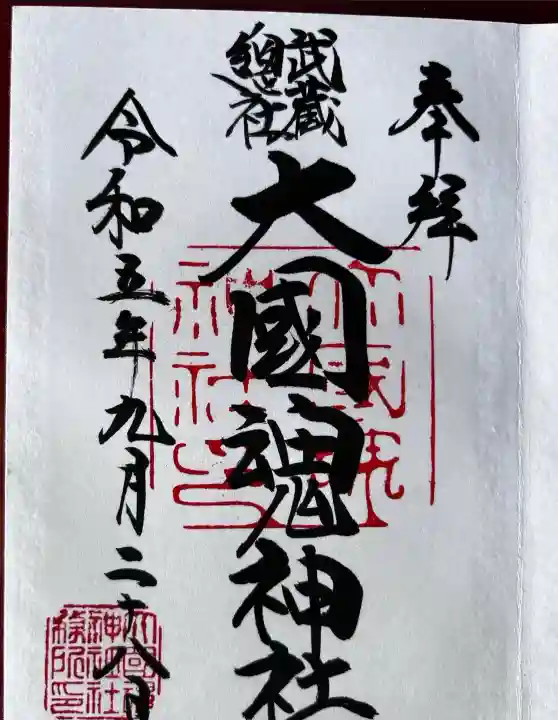 奉拝
武蔵
総社
大國魂神社
令和五年九月二十八日
大國魂
神社印